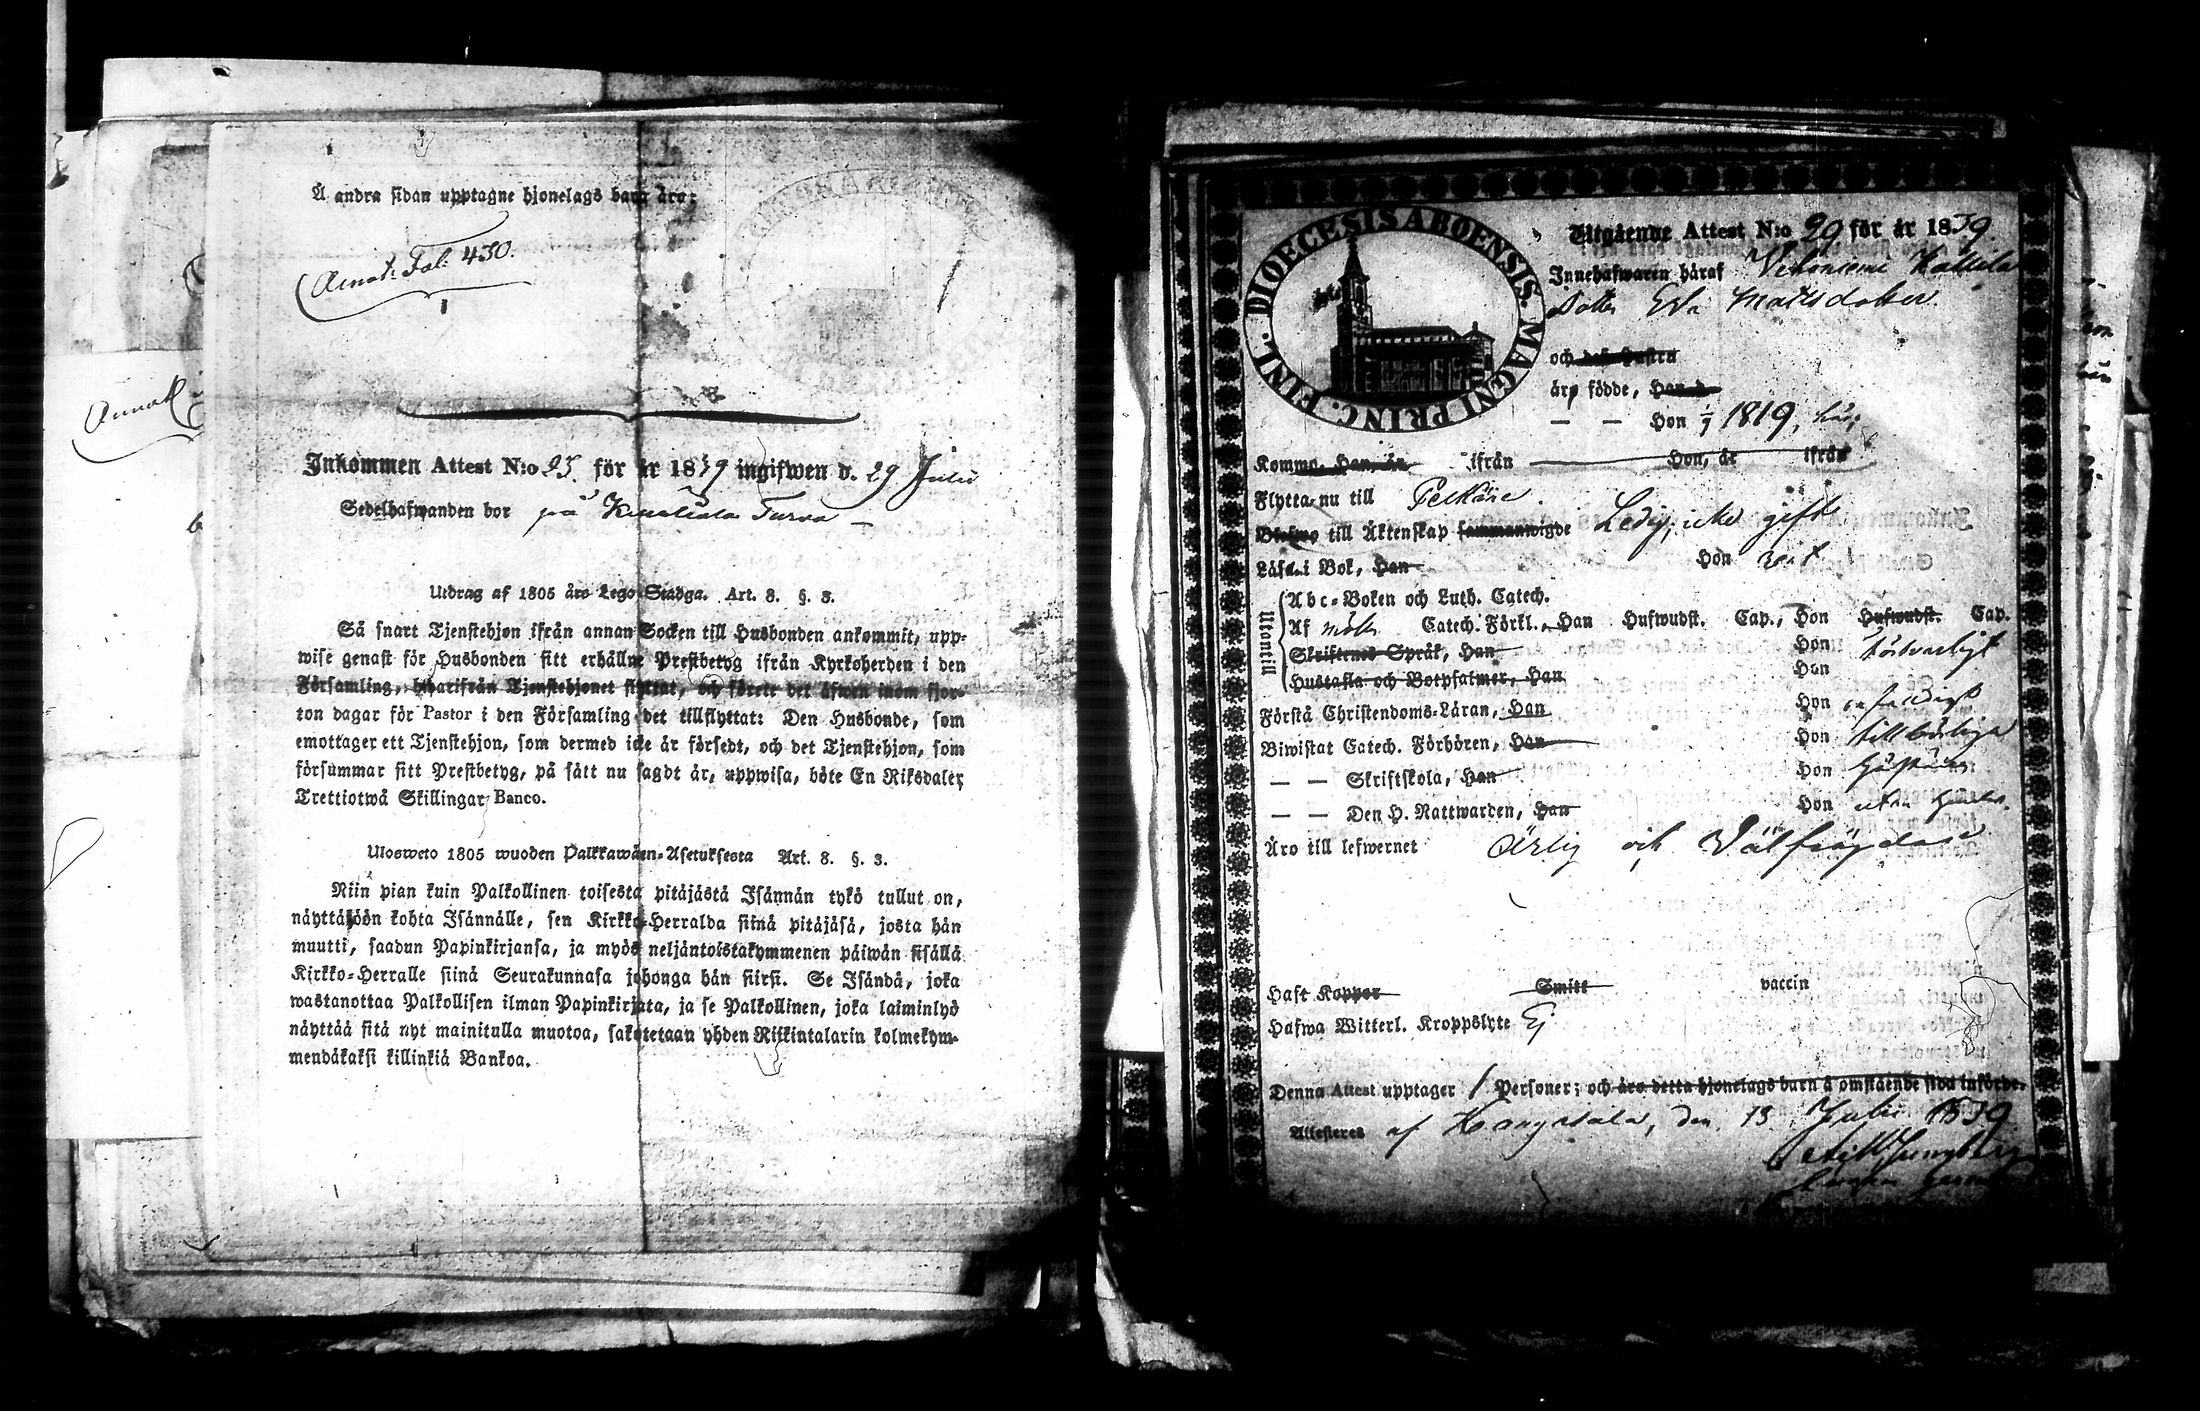 Å andra sidan upptagne hjonelags barn äro:
Annot. Fol. 430.
Annot
Inkommen Attest N:o 25. för år 1839 ingifwen d. 29 Julii
Sedelhafwanden bor på Turva
Utdrag af 1805 års Lego-Stadga. Art. 8. §. 3.
Så snart Tjenstehjon ifrån annan Socken till Husbonden ankommit, upp-
wise genast för Husbonden sitt erhållne Prestbetyg ifrån Kyrkoherden i den
Församling, hwarifrån Tjenstehjonet flyttat, och förete det äfwen inom fjor-
ton dagar för Pastor i den Församling det tillflyttat: Den Husbonde, som
emottager ett Tjenstehjon, som dermed icke är försedt, och det Tjenstehjon, som
försummar sitt Prestbetyg, på sätt nu sagdt är, uppwisa, böte En Riksdaler
Trettiotwå Skillingar Banco.
Ulosweto 1805 wuoden Palkkawäen-Asetuksesta Art. 8. §. 3.
Niin pian kuin Palkollinen toisesta pitäjästä Isännän tykö tullut on,
näyttäköön kohta Isännälle, sen Kirkko-Herralda siinä pitäjäsä, josta hän
muutti, saadun Papinkirjansa, ja myös neljäntoistakymmenen päiwän sisällä
Kirkko-Herralle siinä Seurakunnasa johonga hän siirsi. Se Isändä, joka
wastanottaa Palkollisen ilman Papinkirjata, ja se Palkollinen, joka laiminlyö
näyttää sitä nyt mainitulla muotoa, sakotetaan yhden Riikintalarin kolmekym-
mendäkaksi killinkiä Bankoa.
DIOECESIS ABOENSIS. MAGNI PRINC. FINL.
Utgående Attest N:o 29 för år 1839
Innehafwarin häraf Vehoniemi
Dotter Eva Matsdotter.
och des Hustru
äro födde, Han
— — Hon 1/7 1819, här;
Komme, Han, år ifrån Hon, år ifrån
Flytta nu till Pelkäne.
Blefwo till Äktenskap sammanwigde Ledig, icke gift
Läsa i Bok, Han Hon
Utantill
Abc-Boken och Luth. Catech.
Af Catech. Förkl., Han Hufwudst. Cap., Hon Hufwudst. Cap.
Skriftenes Språk, Han Hon försvarligt
Hustafla och Botpsalmer, Han Hon
Förstå Christendoms-Läran, Han Hon
Biwistat Catech. Förhören, Han Hon
— — Skriftskola, Han Hon
— — Den H. Nattwarden, Han Hon
Äro till lefwernet Ärlig och Välfrägdad
Haft Koppor Smitt vaccin
Hafwa Witterl. Kroppslyte Ej
Denna Attest upptager 1 Personer; och äro detta hjonelags barn å omstående sida införde.
Attesteres af Kangasala, den 13 Julii 1839